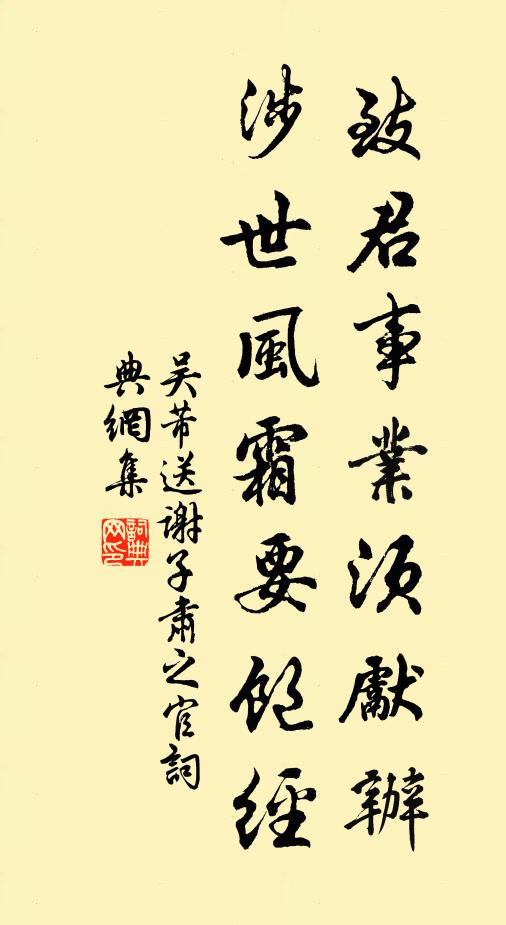 致君事業須獻辦
涉世風霜要飽經
吳芾送谢子肅之官詞
典網集
詞典网印